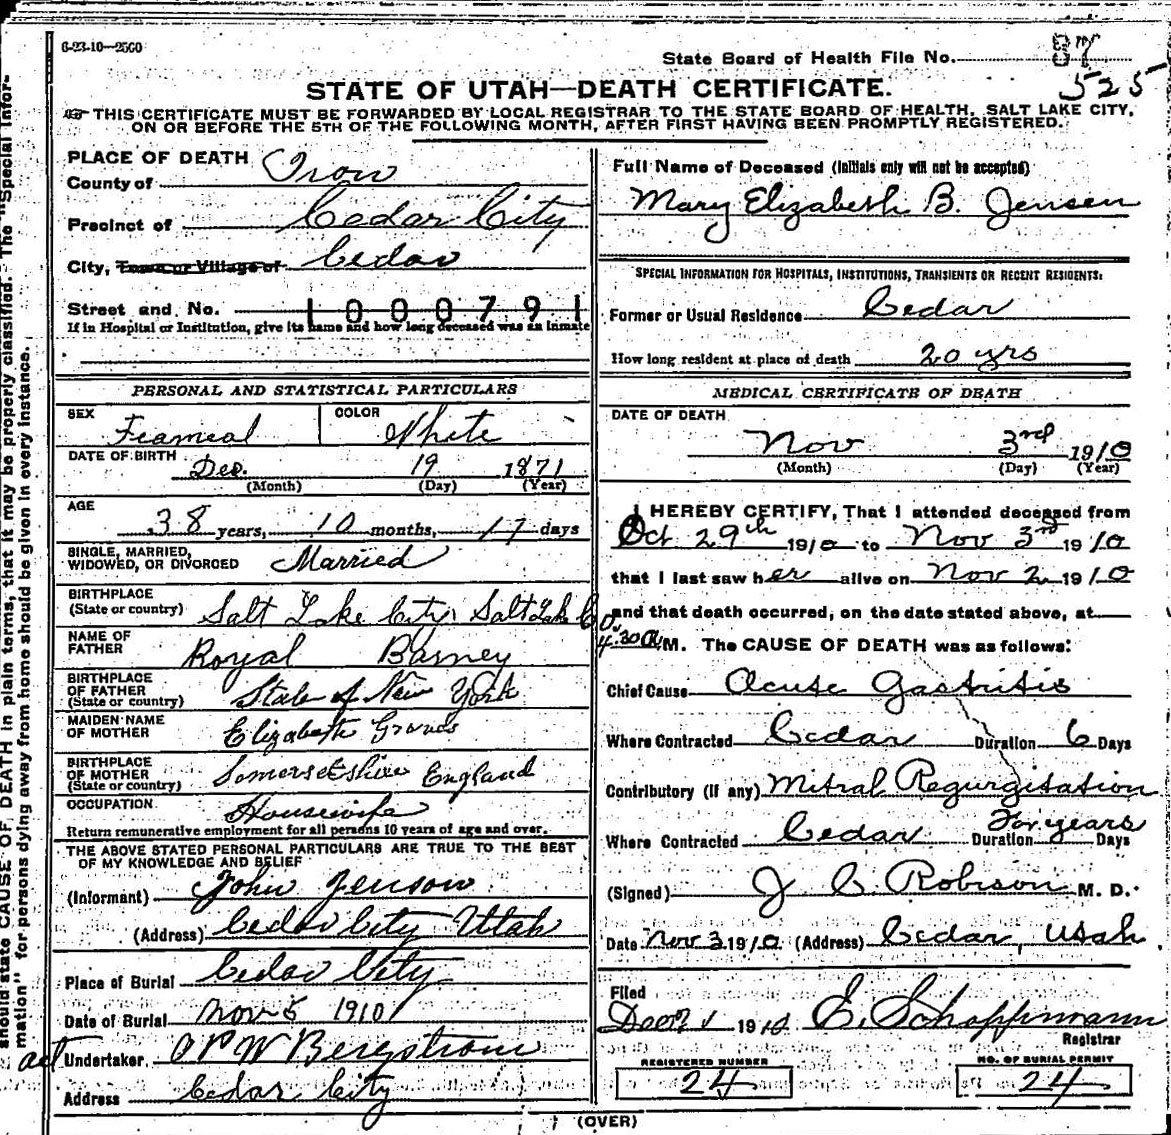 6-23-10—2500
State Board of Health File No. 87
525
STATE OF UTAH—DEATH CERTIFICATE.
THIS CERTIFICATE MUST BE FORWARDED BY LOCAL REGISTRAR TO THE STATE BOARD OF HEALTH, SALT LAKE CITY,
ON OR BEFORE THE 5TH OF THE FOLLOWING MONTH, AFTER FIRST HAVING BEEN PROMPTLY REGISTERED.
PLACE OF DEATH
County of Iron
Precinct of Cedar City
City, Town or Village of Cedar
Street and No. 1000791
If in Hospital or Institution, give its name and how long deceased was an inmate
PERSONAL AND STATISTICAL PARTICULARS
SEX COLOR
Feameal White
DATE OF BIRTH
Dec. 19 1871
(Month) (Day) (Year)
AGE
38 years, 10 months, 17 days
SINGLE, MARRIED,
WIDOWED, OR DIVORCED Married
BIRTHPLACE
(State or country) Salt Lake City Salt Lake Co.
NAME OF
FATHER Royal Barney
BIRTHPLACE
OF FATHER
(State or country) State of New York
MAIDEN NAME
OF MOTHER Elizabeth
BIRTHPLACE
OF MOTHER
(State or country) Somersetshire England
OCCUPATION
Housewife
Return remunerative employment for all persons 10 years of age and over.
THE ABOVE STATED PERSONAL PARTICULARS ARE TRUE TO THE BEST
OF MY KNOWLEDGE AND BELIEF
(Informant) John Jenson
(Address) Cedar City Utah
Place of Burial Cedar City
Date of Burial Nov 5 1910
act Undertaker. O P W Bergstrom
Address Cedar City
Full Name of Deceased (Initials only will not be accepted)
Mary Elizabeth B. Jensen
SPECIAL INFORMATION FOR HOSPITALS, INSTITUTIONS, TRANSIENTS OR RECENT RESIDENTS:
Former or Usual Residence Cedar
How long resident at place of death 20 yrs
MEDICAL CERTIFICATE OF DEATH
DATE OF DEATH
Nov 3rd 1910
(Month) (Day) (Year)
I HEREBY CERTIFY, That I attended deceased from
Oct 29th 1910 to Nov 3rd 1910
that I last saw her alive on Nov 2 1910
and that death occurred, on the date stated above, at
4.30 A M. The CAUSE OF DEATH was as follows:
Chief Cause Acute Gastritis
Where Contracted Cedar Duration 6 Days
Contributory (if any) Mitral Regurgitation
For years
Where Contracted Cedar Duration Days
(Signed) J C Robison M. D.
Date Nov 3 1910 (Address) Cedar, Utah
Filed
1910 E. Schoppmann
Registrar
REGISTERED NUMBER
24
NO. OF BURIAL PERMIT
24
(OVER)
should state CAUSE OF DEATH in plain terms, that it may be properly classified. The "Special Infor-
mation" for persons dying away from home should be given in every instance.